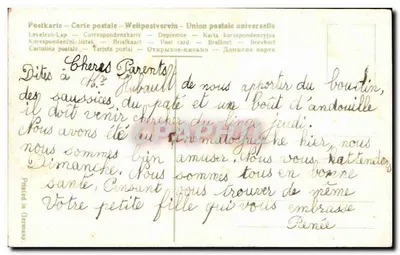 Postkarte – Carte postale – Weltpostverein – Union postale universelle
Levelező-Lap – Correspondenzkarte – Dopisnice – Karta korespondencyjna
Korespondenční lístek – Briefkaart – Post card – Brefkort – Brevkort
Cartolina postale – Tarjeta postal – Открытое письмо
Chères Parents
Dites à Hubault de nous apporter du boudin,
des saussices, du pâté et un bout d'andouille
il doit venir du linge jeudi.
Nous avons été au cinématographe hier, nous
nous sommes bien amuser. Nous vous attendons
Dimanche. Nous sommes tous en bonne
santé, Pensant vous trouver de même
Votre petite fille qui vous embrasse
Renée
Printed in Germany